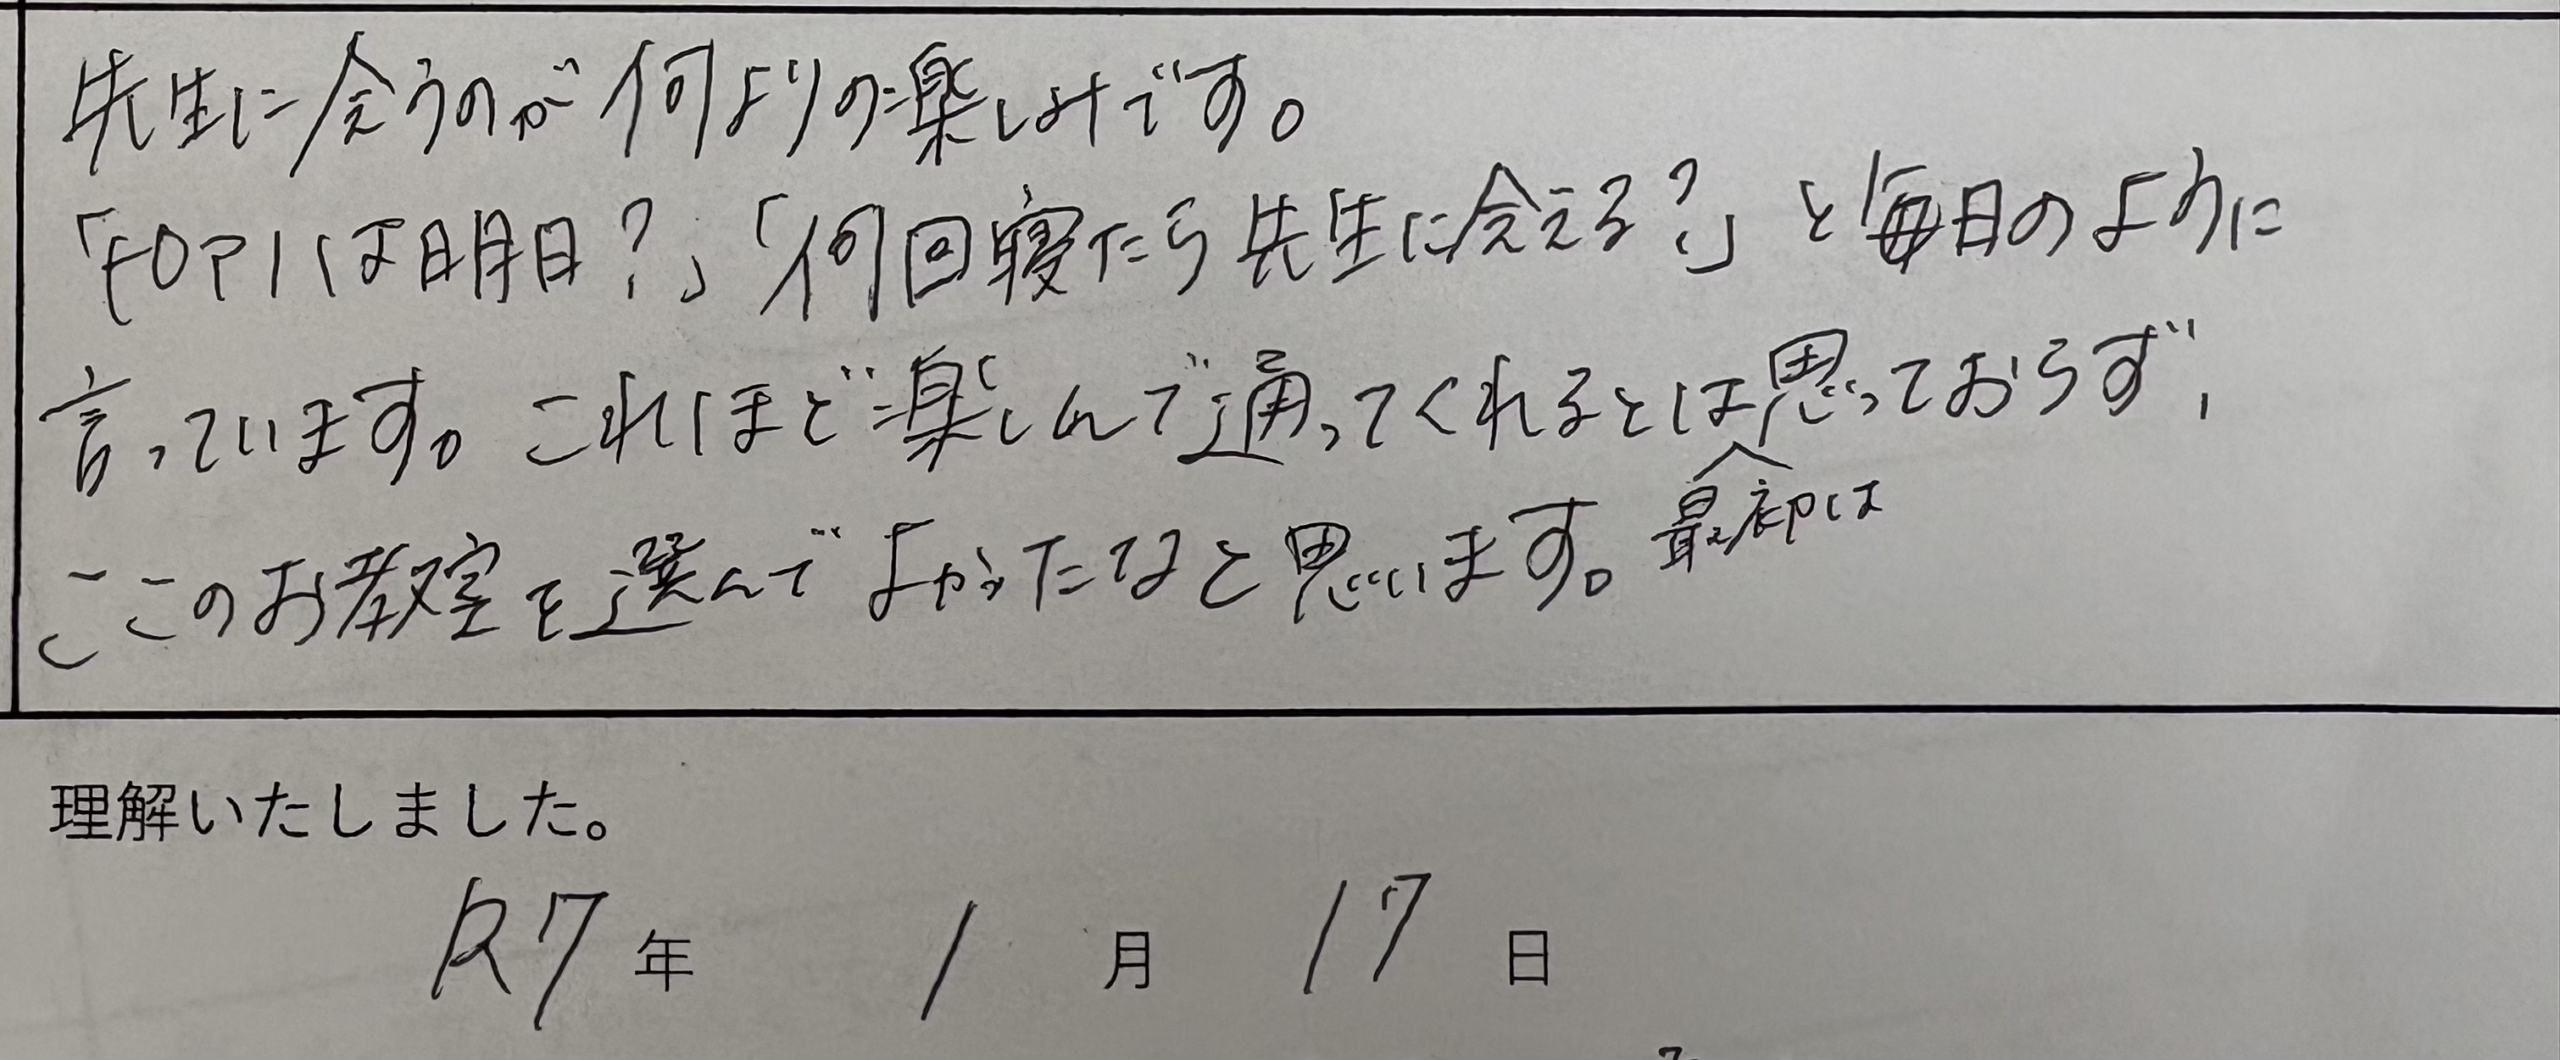 先生に会うのが何よりの楽しみです。
「TOPIは明日？」「何回寝たら先生に会える？」と毎日のように
言っています。これほど楽しんで通ってくれるとは思っておらず、
最初は
ここのお教室を選んでよかったなと思います。
理解いたしました。
R7年 1月 17日